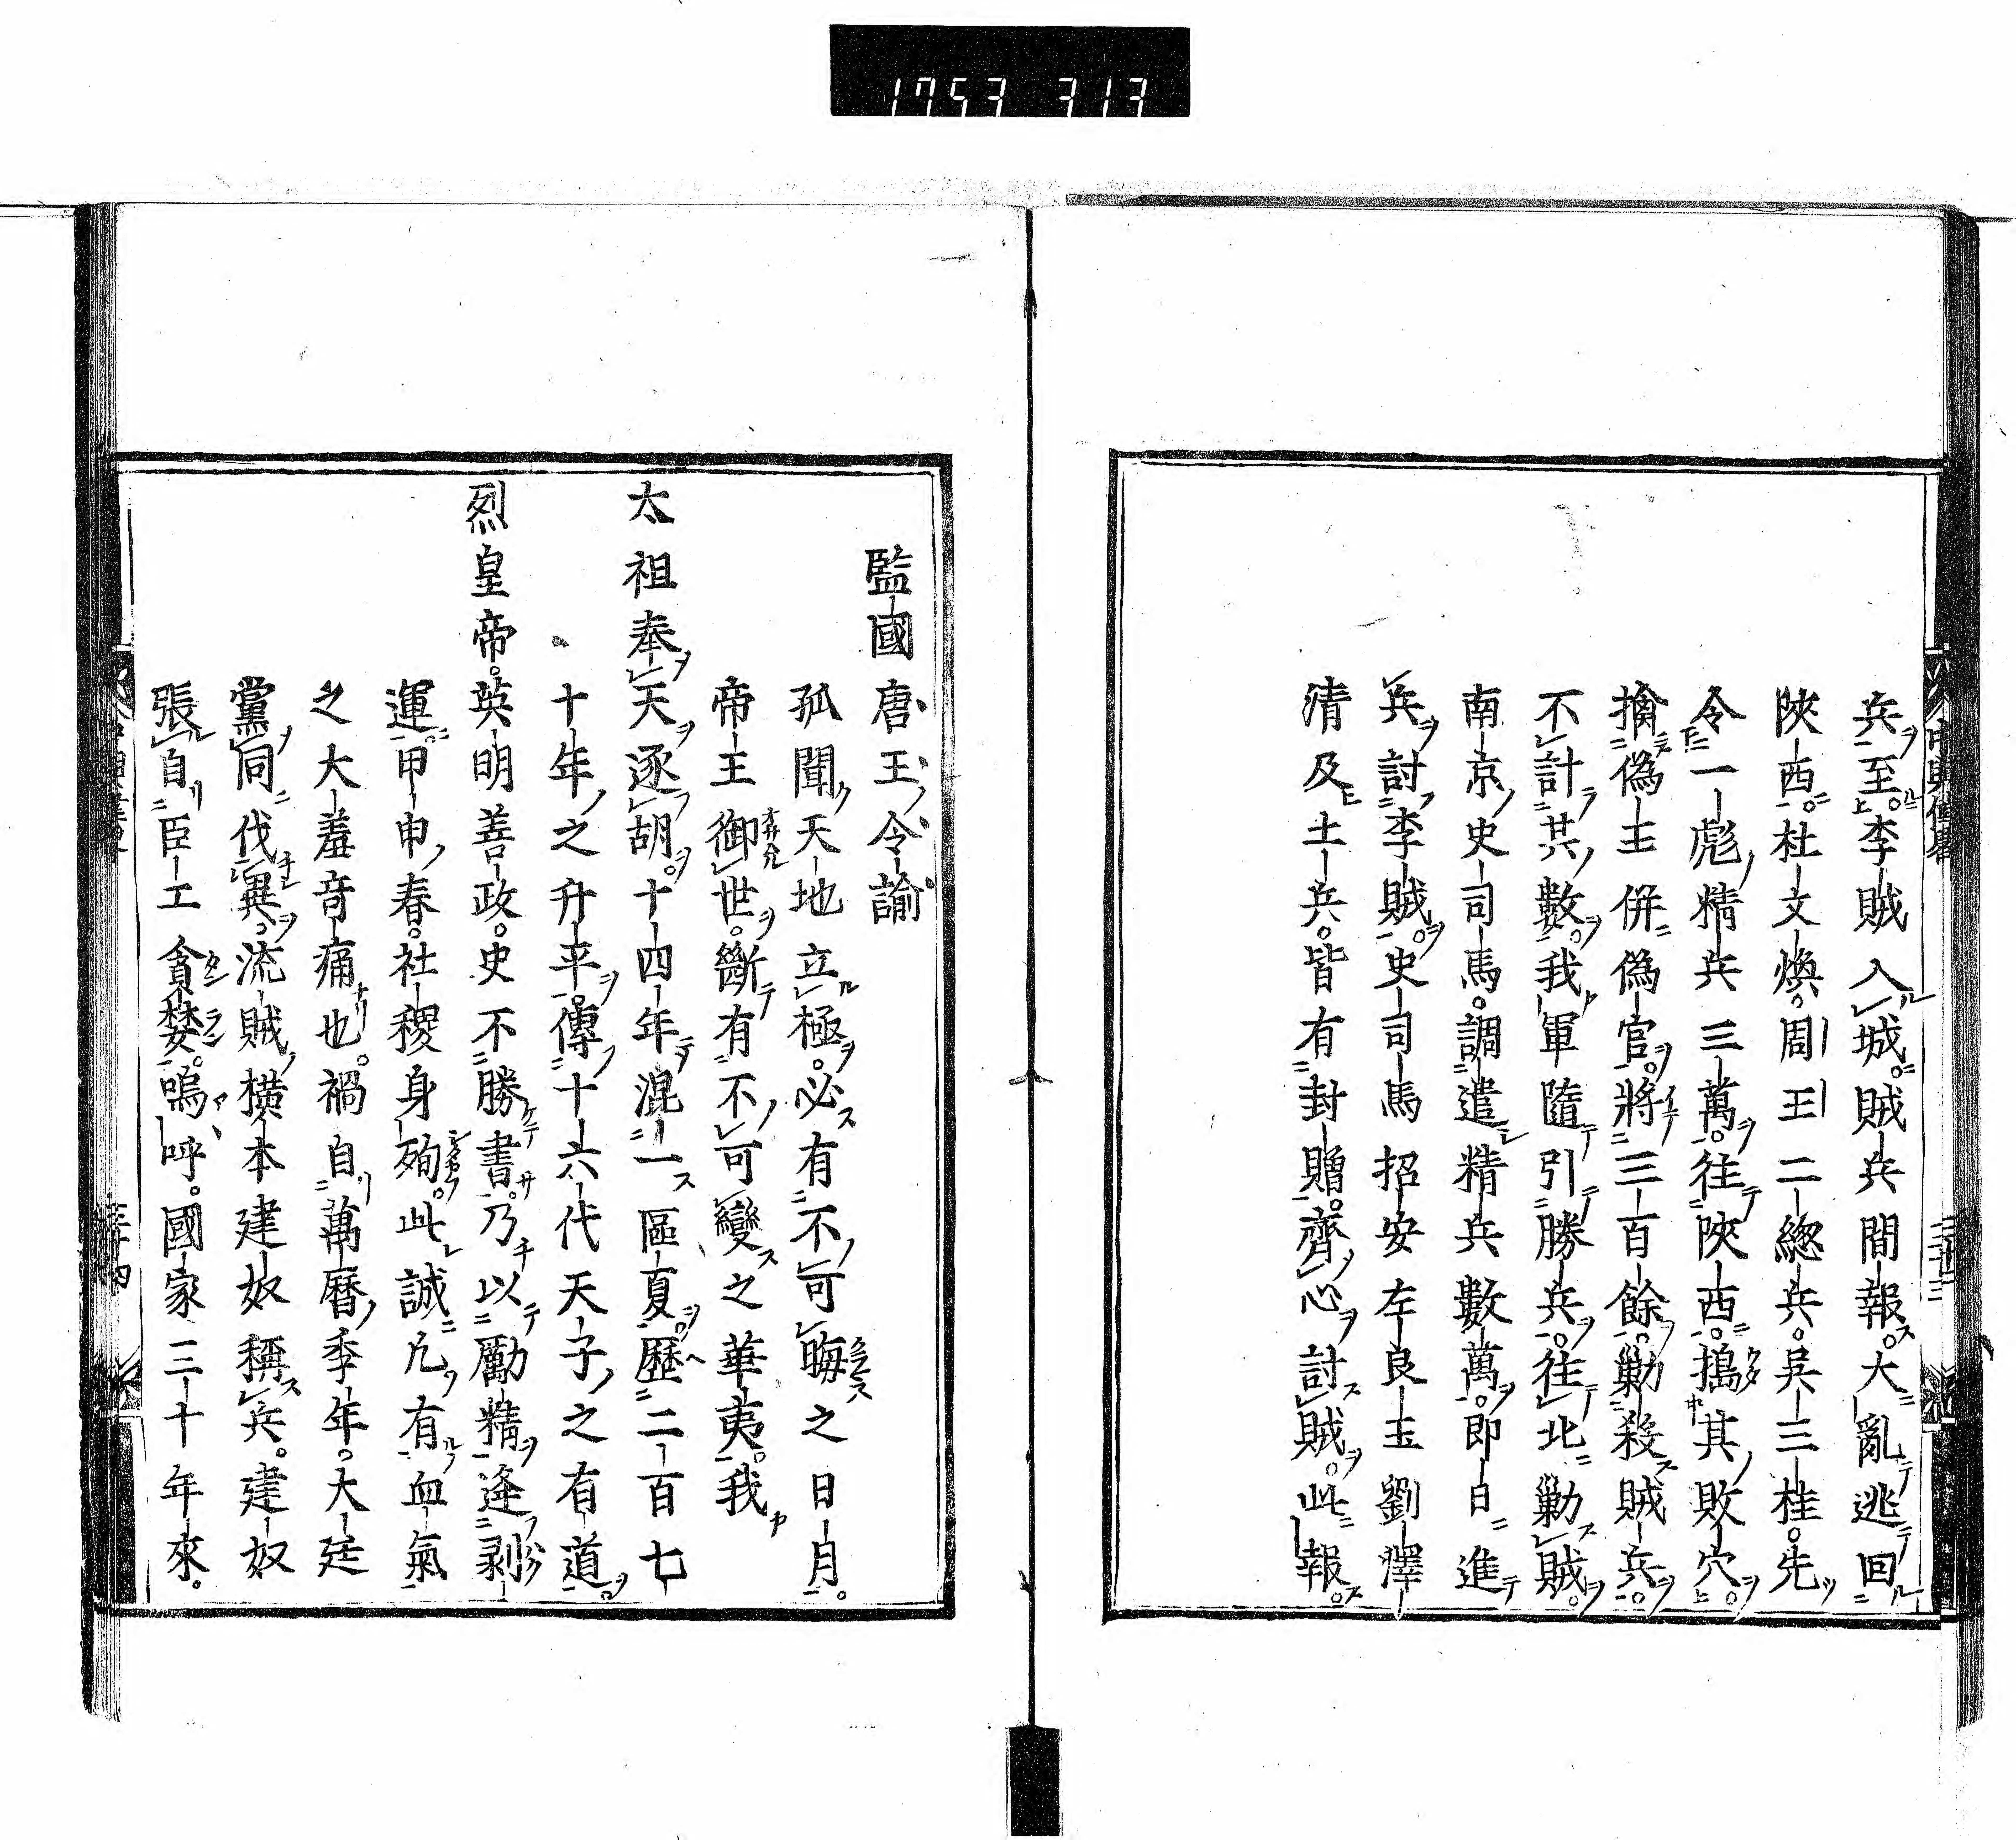 1753 313
兵至。李賊入城。賊兵間報。大亂逃回
陝西。杜文煥。周王二總兵。吳三桂。先
令一彪精兵三萬。往陝西。搗其敗穴。
擒偽王併偽官。將三百餘。勦殺賊兵。
不計其數。我軍隨引勝兵。往北勦賊。
南京史司馬。調遣精兵數萬。即日進
兵討李賊。史司馬招安左良玉劉澤
清及土兵。皆有封贈。齊心討賊。此報。
監國唐王令諭
孤聞天地立極。必有不可晦之日月。
帝王御世。斷有不可變之華夷。我
太祖奉天逐胡。十四年混一區夏。歷二百七
十年之升平。傳十六代天子之有道。
烈皇帝。英明善政。史不勝書。乃以勵精逢剥
運。甲申春。社稷身殉。此誠凡有血氣
之大羞奇痛也。禍自萬曆季年。大廷
黨同伐異。流賊橫本建奴稱兵。建奴
張自臣工貪婪。嗚呼。國家三十年來。